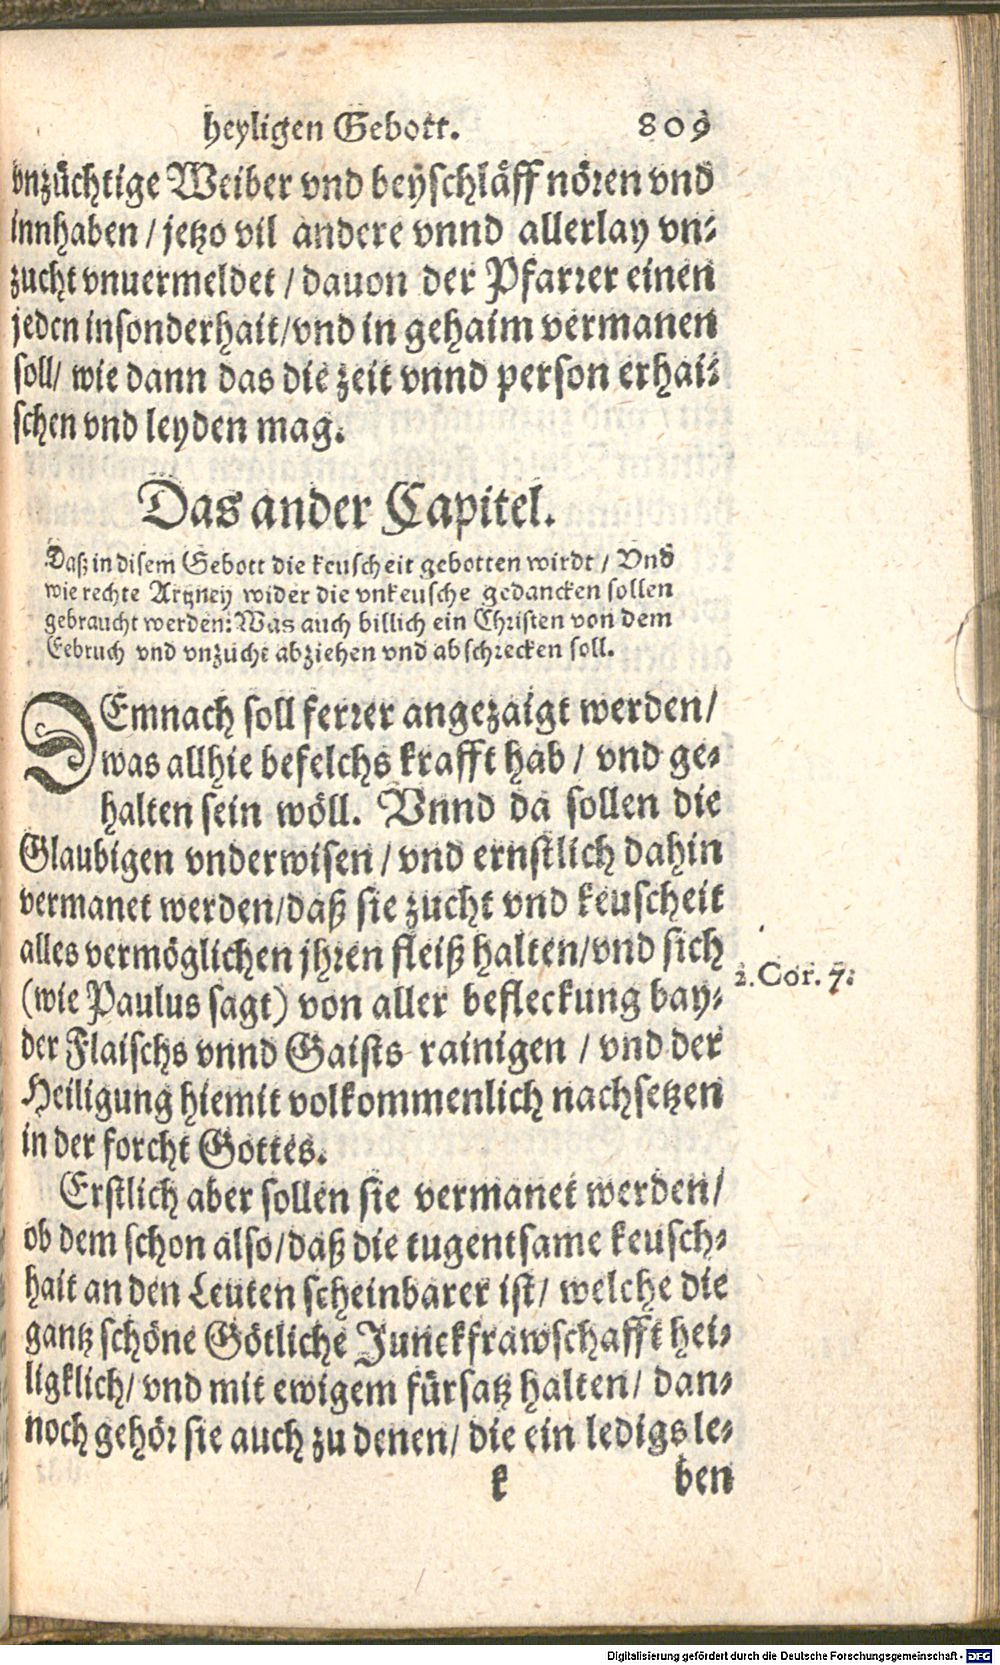 heyligen Gebott. 809
vnzüchtige Weiber vnd beyschläff nören vnd
innhaben / jetzo vil andere vnnd allerlay vn-
zucht vnuermeldet / dauon der Pfarrer einen
jeden insonderhait/vnd in gehaim vermanen
soll/ wie dann das die zeit vnnd person erhai-
schen vnd leyden mag.
Das ander Capitel.
Daß in disem Gebott die keuscheit gebotten wirdt / Vnd
wie rechte Artzney wider die vnkeusche gedancken sollen
gebraucht werden: Was auch billich ein Christen von dem
Eebruch vnd vnzucht abziehen vnd abschrecken soll.
DEmnach soll ferrer angezaigt werden/
was allhie befelchs krafft hab / vnd ge-
halten sein wöll. Vnnd da sollen die
Glaubigen vnderwisen / vnd ernstlich dahin
vermanet werden/daß sie zucht vnd keuscheit
alles vermöglichen jhren fleiß halten/vnd sich
(wie Paulus sagt) von aller befleckung bay- 2.Cor. 7:
der Flaischs vnnd Gaists rainigen / vnd der
Heiligung hiemit volkommenlich nachsetzen
in der forcht Gottes.
Erstlich aber sollen sie vermanet werden/
ob dem schon also/daß die tugentsame keusch-
hait an den Leuten scheinbarer ist/ welche die
gantz schöne Götliche Junckfrawschafft hei-
ligklich/ vnd mit ewigem fürsatz halten/ dan-
noch gehör sie auch zu denen/ die ein ledigs le-
k ben
Digitalisierung gefördert durch die Deutsche Forschungsgemeinschaft - DFG